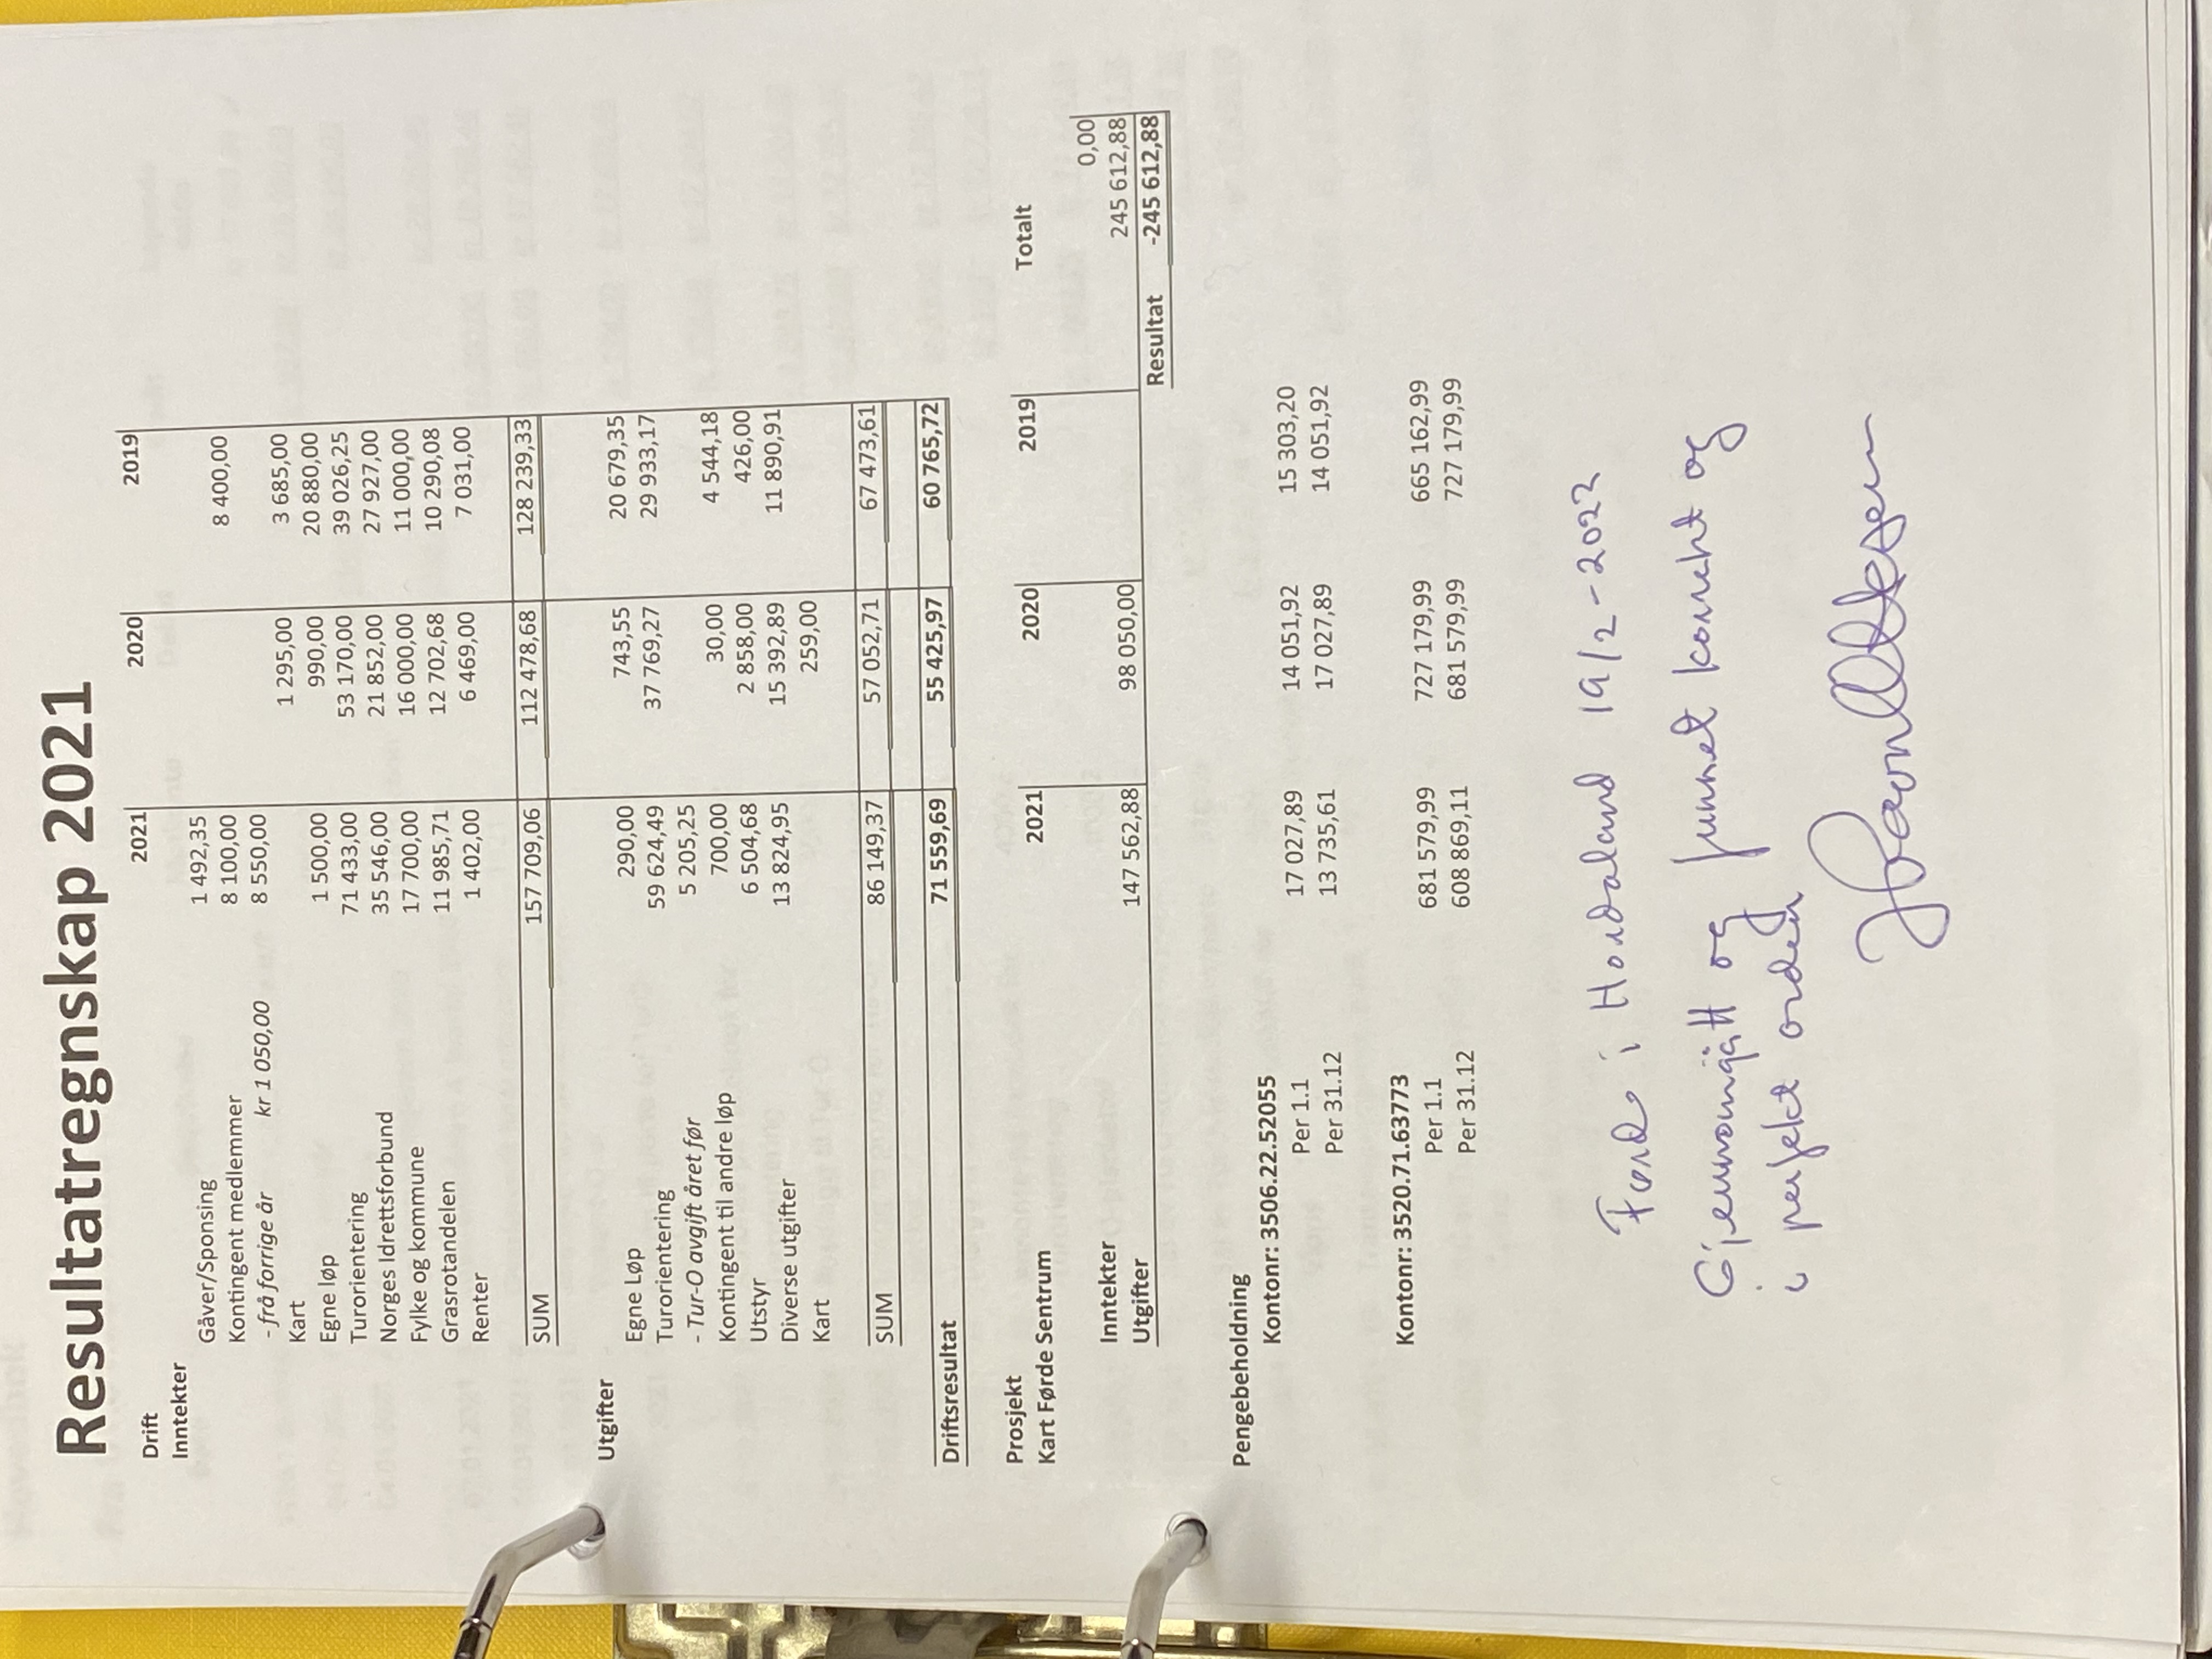 Resultatregnskap 2021
Drift 2021 2020 2019
Inntekter
Gåver/Sponsing 1 492,35
Kontingent medlemmer 8 100,00 8 400,00
- frå forrige år kr 1 050,00 8 550,00
Kart 1 295,00 3 685,00
Egne løp 1 500,00 990,00 20 880,00
Turorientering 71 433,00 53 170,00 39 026,25
Norges Idrettsforbund 35 546,00 21 852,00 27 927,00
Fylke og kommune 17 700,00 16 000,00 11 000,00
Grasrotandelen 11 985,71 12 702,68 10 290,08
Renter 1 402,00 6 469,00 7 031,00
SUM 157 709,06 112 478,68 128 239,33
Utgifter
Egne Løp 290,00 743,55 20 679,35
Turorientering 59 624,49 37 769,27 29 933,17
- Tur-O avgift året før 5 205,25
Kontingent til andre løp 700,00 30,00 4 544,18
Utstyr 6 504,68 2 858,00 426,00
Diverse utgifter 13 824,95 15 392,89 11 890,91
Kart 259,00
SUM 86 149,37 57 052,71 67 473,61
Driftsresultat 71 559,69 55 425,97 60 765,72
Prosjekt
Kart Førde Sentrum 2021 2020 2019 Totalt
Inntekter 0,00
Utgifter 147 562,88 98 050,00 245 612,88
Resultat -245 612,88
Pengebeholdning
Kontonr: 3506.22.52055
Per 1.1 17 027,89 14 051,92 15 303,20
Per 31.12 13 735,61 17 027,89 14 051,92
Kontonr: 3520.71.63773
Per 1.1 681 579,99 727 179,99 665 162,99
Per 31.12 608 869,11 681 579,99 727 179,99
Førde i Hordaland 19/2-2022
Gjennomgått og funnet korrekt og
i perfekt orden